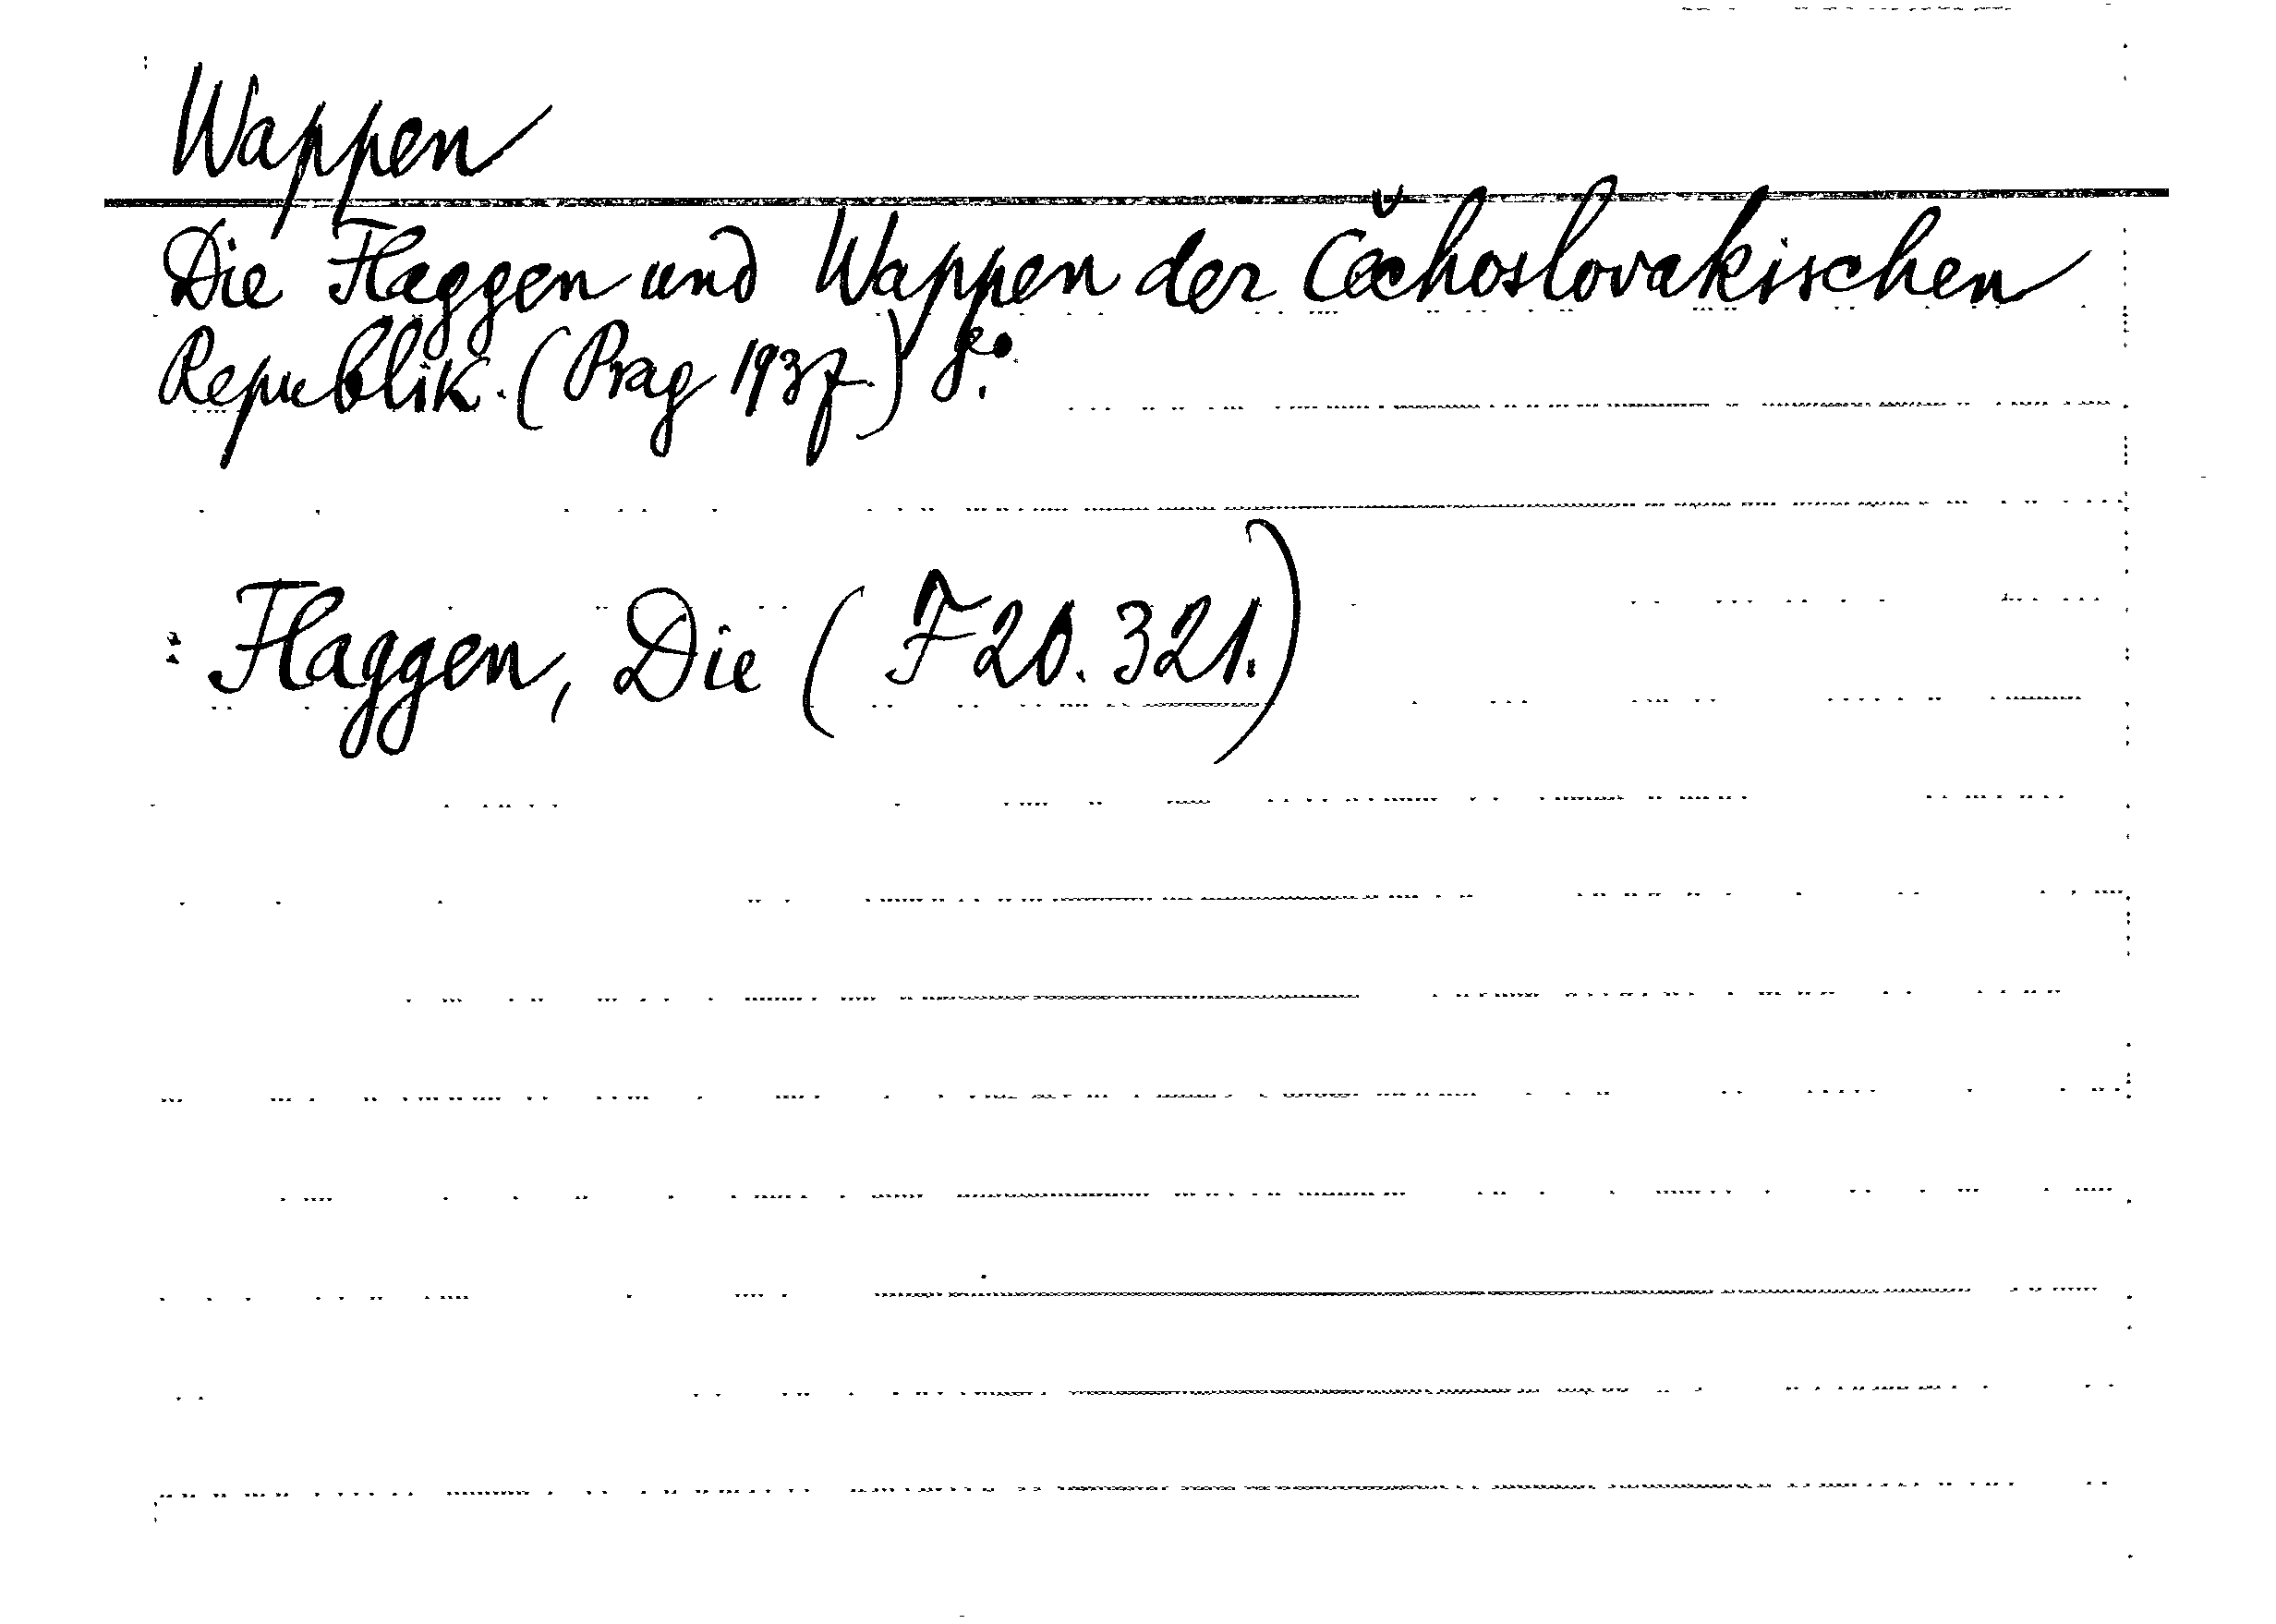 Wappen
Die Flaggen und Wappen der Čechoslovakischen
Republik. (Prag 1937.) 8º.
: Flaggen, Die (F 20.321.)